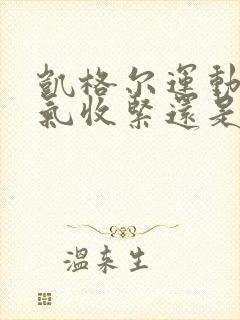 凱格尔運動
氣收緊還是
溫来生